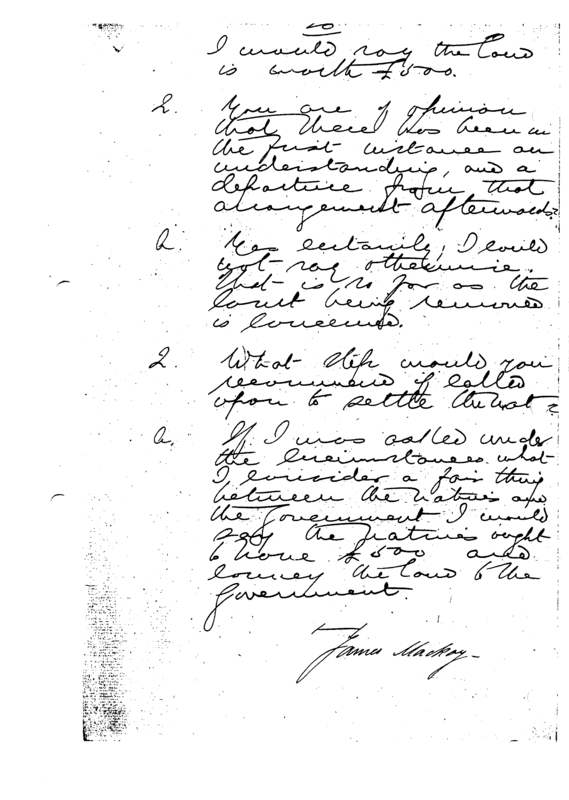 20
I would say the land
is worth £500.
Q. You are of opinion
that there has been in
the first instance an
understanding, and a
departure from that
arrangement afterwards?
A. Yes certainly, I could
not say otherwise.
That is so far as the
Court being removed
is concerned.
Q. What step would you
recommend if called
upon to settle
A. If I was asked under
the circumstances what
I consider a fair thing
between the natives and
the Government I would
say the natives ought
to have £500 and
convey the land to the
Government.
James Mackay